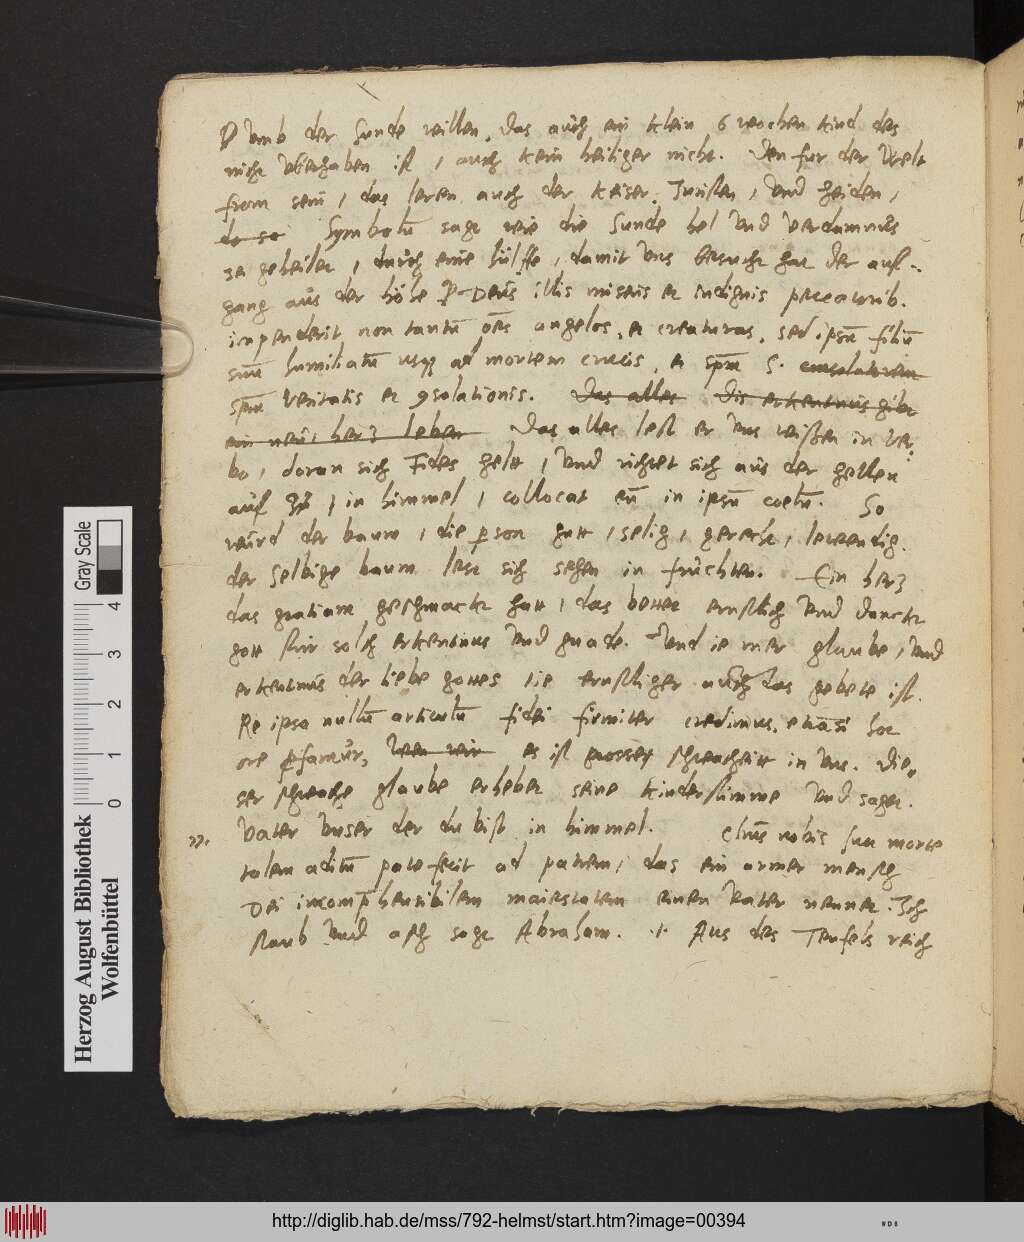 vmb der sunde willen, das auch ein klein 6 wochen kind des
nicht vberhaben ist, auch kein heiliger nicht. Den fur der Welt
from sein, das leren auch der keiser, Juristen, vnd heiden,
do so Symbolū sagt wie die sunde hel vnd verdamnus
sei geheilet, durch eine hülffe, damit vns besucht hat der auf-
gang aus der höhe Deus illis miseris et indignis peccatorib.
inpenderit non tantū oēs angelos, et creaturas, sed ipsū filiū
suū humiliatū usq ad mortem crucis, et spm S. consolatorem
spm veritatis et ꝯsolationis. Das alles Dis erkentnus gibt
ein neu hertz leben Das alles lest er vns weißen in ver-
bo, doran sich Fides helt, vnd richtet sich aus der hellen
auf, in himmel, collocat eū in ipsū coelū. So
wurd der baum, die person gutt, selig, gerecht, lebendig.
der selbige baum lest sich sehen in früchten. Ein hertz
das gratiam geschmackt hatt, das bettet ernstlich vnd danckt
gott fur solch erkentnus vnd gnade. Vnd ie mer glaube, vnd
erkentnus der liebe gottes, ie ernstliger auch das gebete ist.
Re ipsa nullū articulū fidei firmiter credimus, etiāsi hoc
ore ꝓfamur, Wen wir es ist grosser schwacheitt in vns. Die-
ser schwache glaube erhebet seine kinderstimme vnd saget.
Vater vnser der du bist in himmel. Chrūs nobis sua morte
talem aditū patefecit ad patrem, das ein armer mensch
Dei incomp̄hensibilem maiestatem einen vater nennet. Ich
staub vnd asch sagt Abraham. 1. Aus des Teufels reich
Herzog August Bibliothek
Wolfenbüttel
Gray Scale
0 1 2 3 4
http://diglib.hab.de/mss/792-helmst/start.htm?image=00394